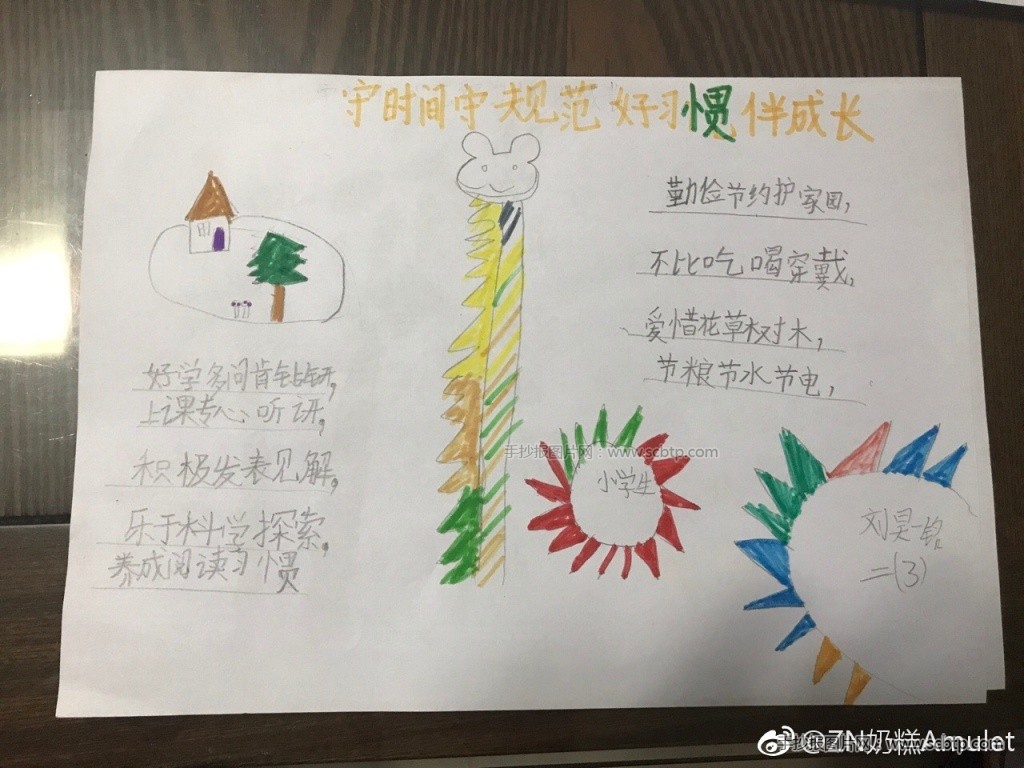 守时间守规范 好习惯伴成长
勤俭节约护家园,
不比吃喝穿戴,
爱惜花草树木,
节粮节水节电,
好学多问肯钻研,
上课专心听讲,
积极发表见解,
乐于科学探索,
养成阅读习惯
小学生
刘昊一铭
二(3)
手抄报图片网:www.scbtp.com
@ZN奶糕Amulet
手抄报图片网:www.scbtp.com